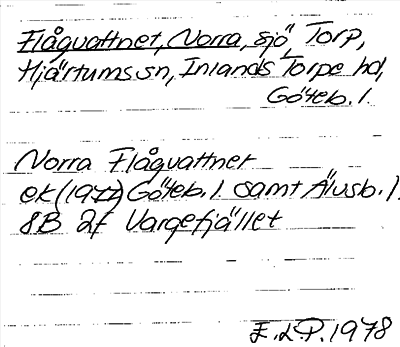 Flågvattnet, Norra, sjö, Torp,
Hjärtums sn, Inlands Torpe hd,
Göteb. l.
Norra Flågvattnet
ek (1977) Göteb. l. samt Älvsb. l.
8B 2f Vargefjället
E.L.P. 1978